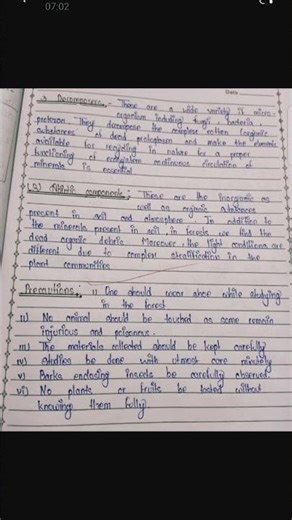 07:02
Date
3. Decomposers :- There are a wide variety of micro-
organism including fungi, bacteria,
protozoan. They decompose the complex rotten (organic
substances of dead protoplasm and make the elements
available for recycling in nature for a proper
functioning of ecosystem continuous circulation of
minerals is essential
(2) Abiotic components :- These are the inorganic as
well as organic substances
present in soil and atmosphere. In addition to
the minerals present in soil, in forests we find the
dead organic debris Moreover the light conditions are
different due to complex stratification in the
plant communities
Precautions :- i) One should wear shoe while studying
in the forest
ii) No animal should be touched as some remain
injurious and poisonous.
iii) The materials collected should be kept carefully
iv) Studies be done with utmost care minutely
v) Barks enclosing insects be carefully observed.
vi) No plants or fruits be tasted without
knowing them fully.